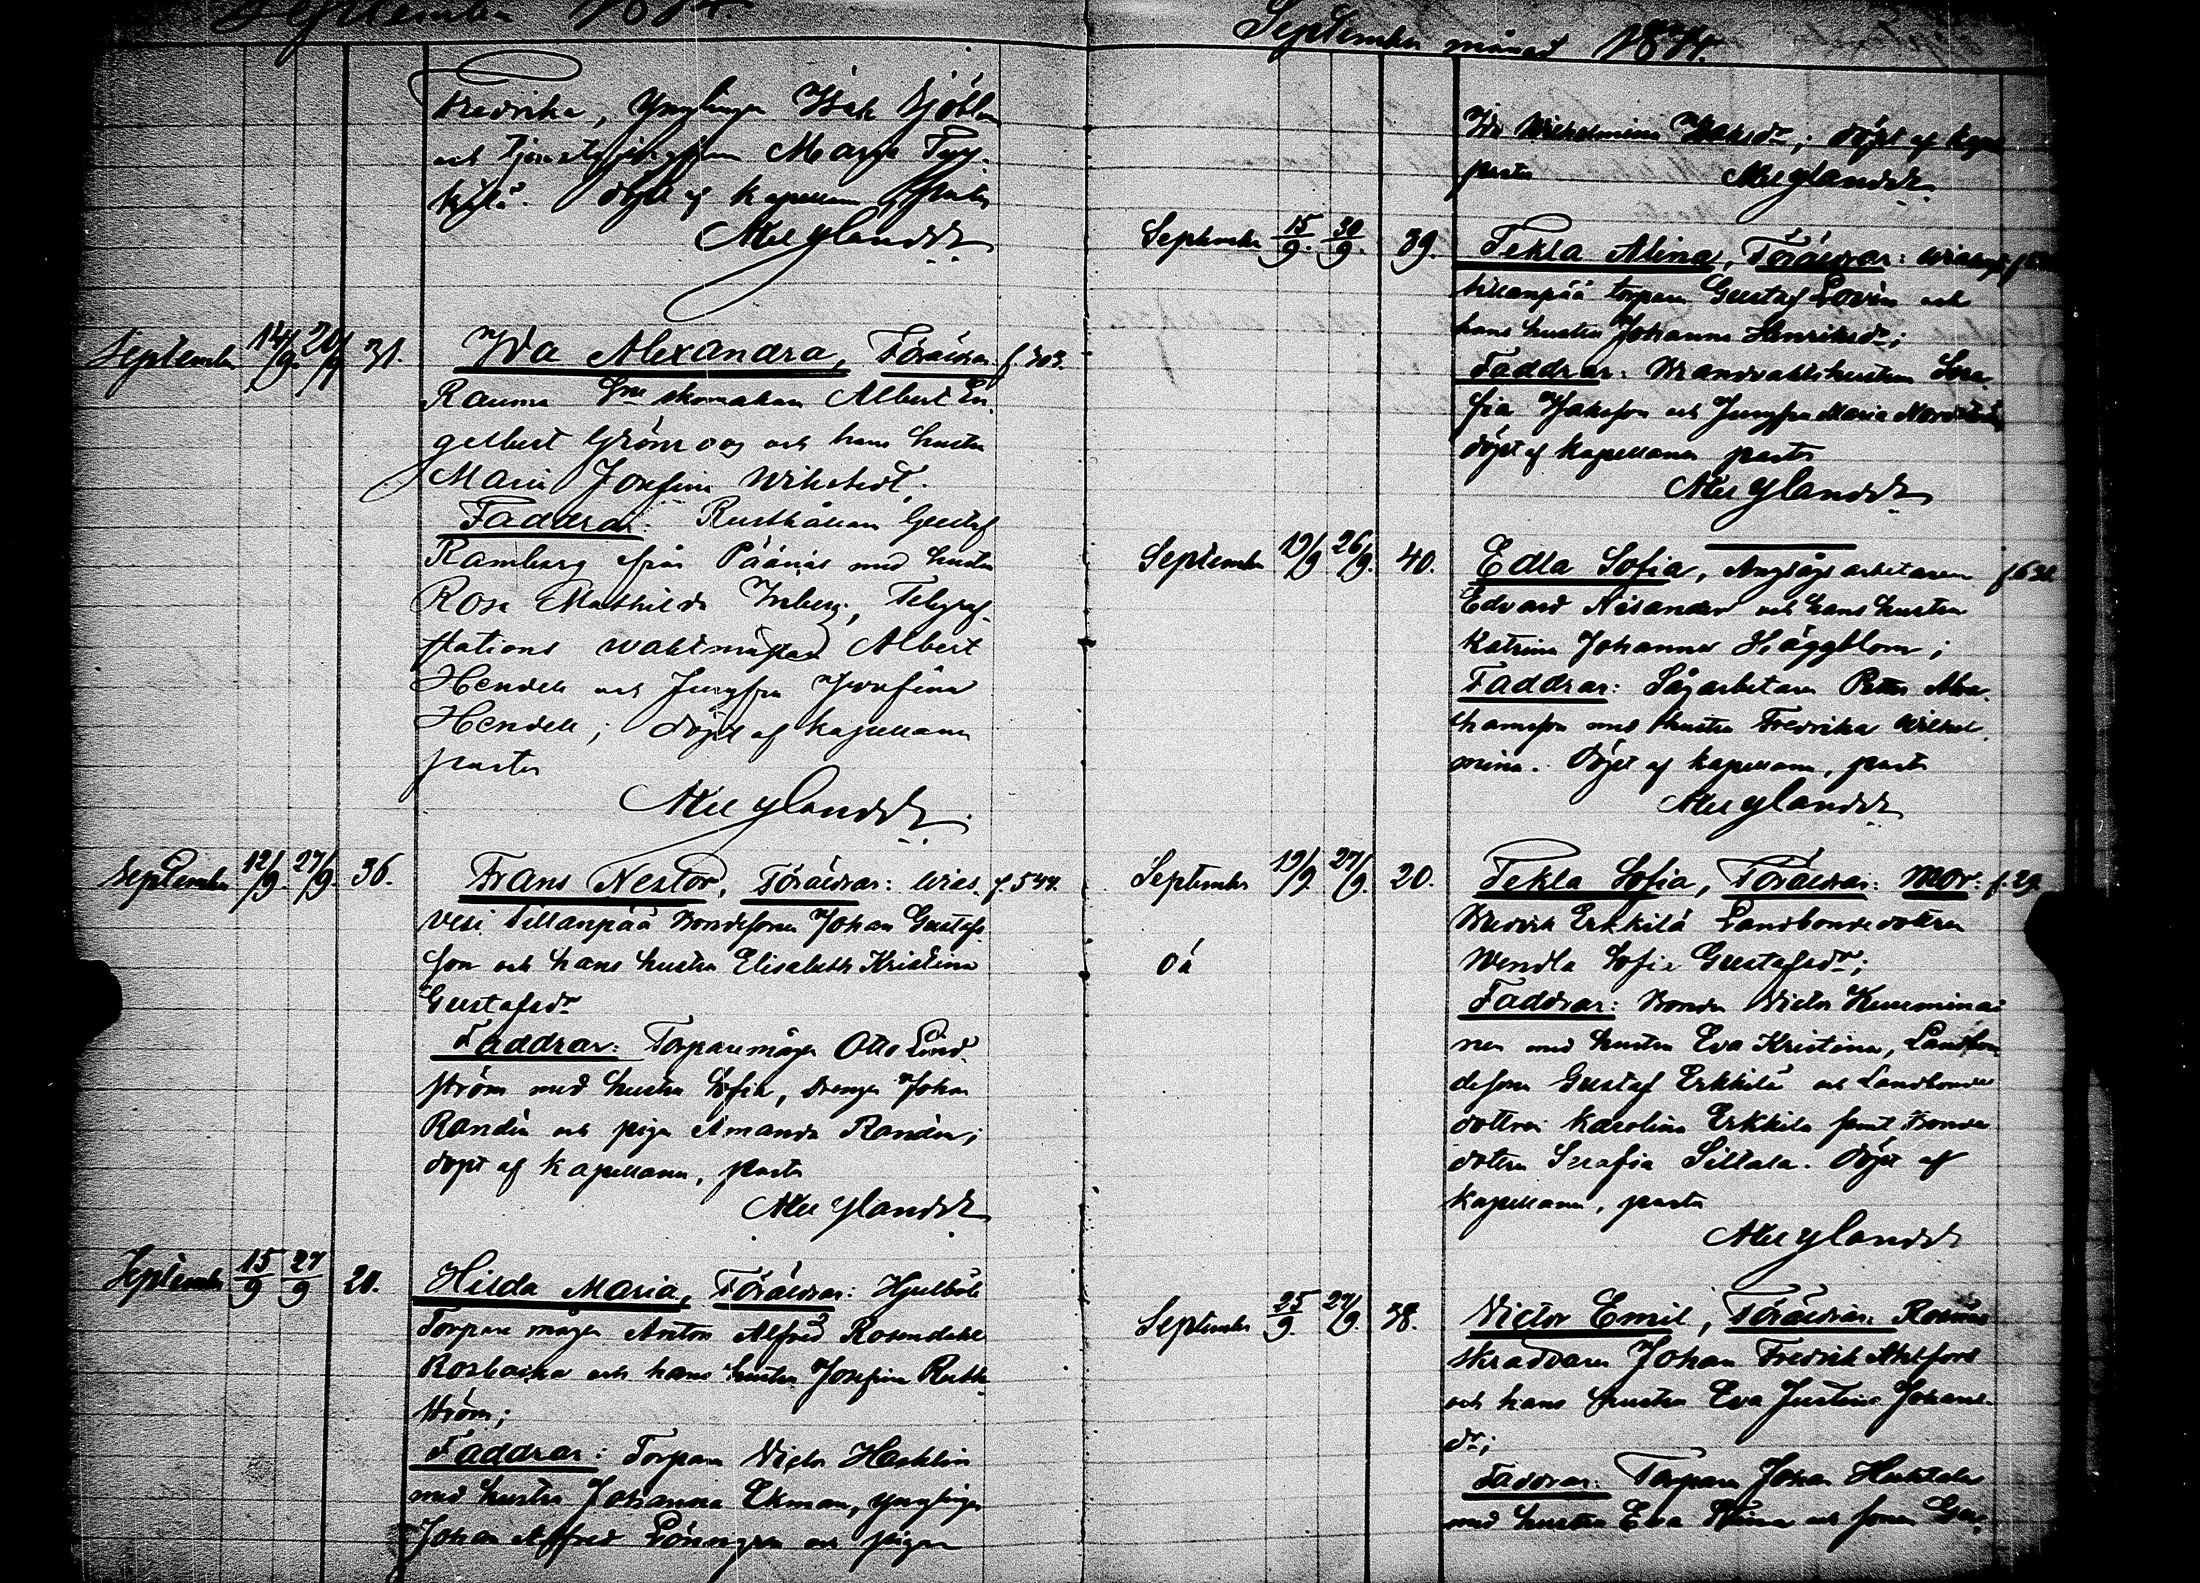 September 1874.
Fredrika, Ynglingen Isak Sjöblom
och Maja
döpt af kapellanen Pastor
Alex Ylander
September 14/9. 20/9 31. Ida Alexandra, Föräldrar: f. 303.
Rauma skomakaren Albert En-
gelbert Grönroos och hans hustru
Maria Josefina Wikstedt.
Faddrar: Rusthållaren Gustaf
Ramberg från Päänäs med hustru
Rosa Mathilda Inberg, Telegraf-
stations waktmästaren Albert
Hendell och Jungfru Josefina
Hendell; döpt af kapellanen
pastor
September 12/9. 27/9. 36. Frans Nestor, Föräldrar: Wias- f. 544.
vesi Sillanpää Bondesonen Johan Gustafs-
son och hans hustru Elisabeth Kristina
Gustafsdr
Faddrar: Torparemågen Otto Lind-
ström med hustru Sofia, drengen Johan
Randén och pigan Amanda Randén;
döpt af kapellanen, pastor
September 15/9 27/9 20. Hilda Maria, Föräldrar: Hjulböle
Torpare mågen Anton Alfred Rosendahl
Rosbacka och hans hustru Josefina
ström;
Faddrar: Torparen Victor
med hustru Johanna Ekman, ynglingen
Johan Alfred Lönngren och pigan
September månad 1874.
Ida Wilhelmina Isaksdr; döpt af kapel
pastor
September 15/9. 30/9. 39. Tekla Alina, Föräldrar: Wiasvesi
Sillanpää torparen Gustaf Lovén och
hans hustru Johanna Henriksdr;
Faddrar: Brandvaktshustrun Sera-
fia Jakobsson och Jungfru Maria
döpt af kapellanen pastor
September 19/9 26/9. 40. Edla Sofia, Ångsågsarbetaren
Edvard Nisander och hans hustru
Katrina Johanna Häggblom;
Faddrar: Sågarbetaren Petter Abra-
hamsson med hustru Fredrika Wilhel-
mina. Döpt af kapellanen, pastor
September 19/9. 27/9. 20. Tekla Sofia, Föräldrar: Mor: f. 29.
Bredvik Erkkilä Landbondedottren
Wendla Sofia Gustafsdr;
oä
Faddrar: Bonden Victor Kuuminai-
nen med hustru Eva Kristina, Landbon-
desonen Gustaf Erkkilä och Landbonde
dottren Karolina Erkkilä samt Bonde
dottren Serafia Sillala. Döpt af
kapellanen, pastor
September 25/9. 27/9. 38. Victor Emil, Föräldrar:
skraddaren Johan Fredrik Ahlfors
och hans hustru Eva Justina Johans-
dr;
Faddrar: Torparen Johan Huhtala
med hustru Eva Stina och sonen Gus-